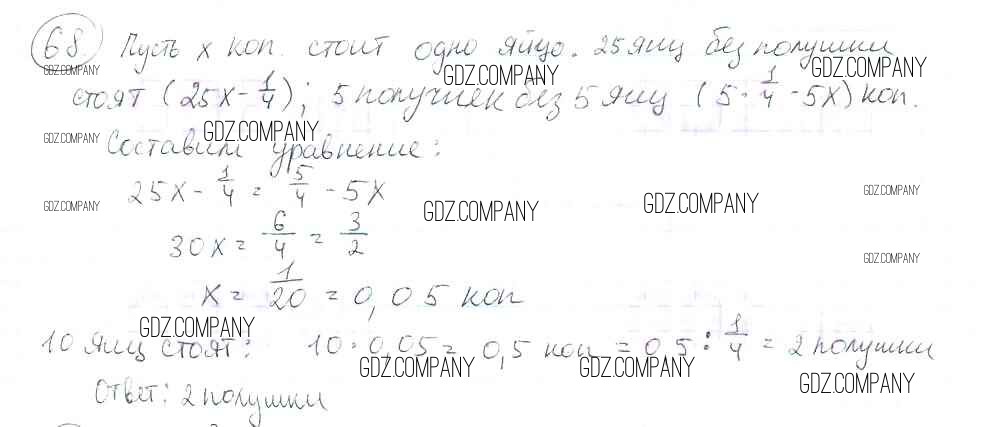 68 Пусть x коп. стоит одно яйцо. 25 яиц без полушки
GDZ.COMPANY GDZ.COMPANY GDZ.COMPANY
стоят (25x - 1/4); 5 полушек без 5 яиц (5 · 1/4 - 5x) коп.
GDZ.COMPANY GDZ.COMPANY
Составим уравнение:
25x - 1/4 = 5/4 - 5x
GDZ.COMPANY GDZ.COMPANY GDZ.COMPANY GDZ.COMPANY
30x = 6/4 = 3/2
GDZ.COMPANY
x = 1/20 = 0,05 коп
GDZ.COMPANY
10 яиц стоят: 10 · 0,05 = 0,5 коп = 0,5 : 1/4 = 2 полушки
GDZ.COMPANY GDZ.COMPANY GDZ.COMPANY
Ответ: 2 полушки